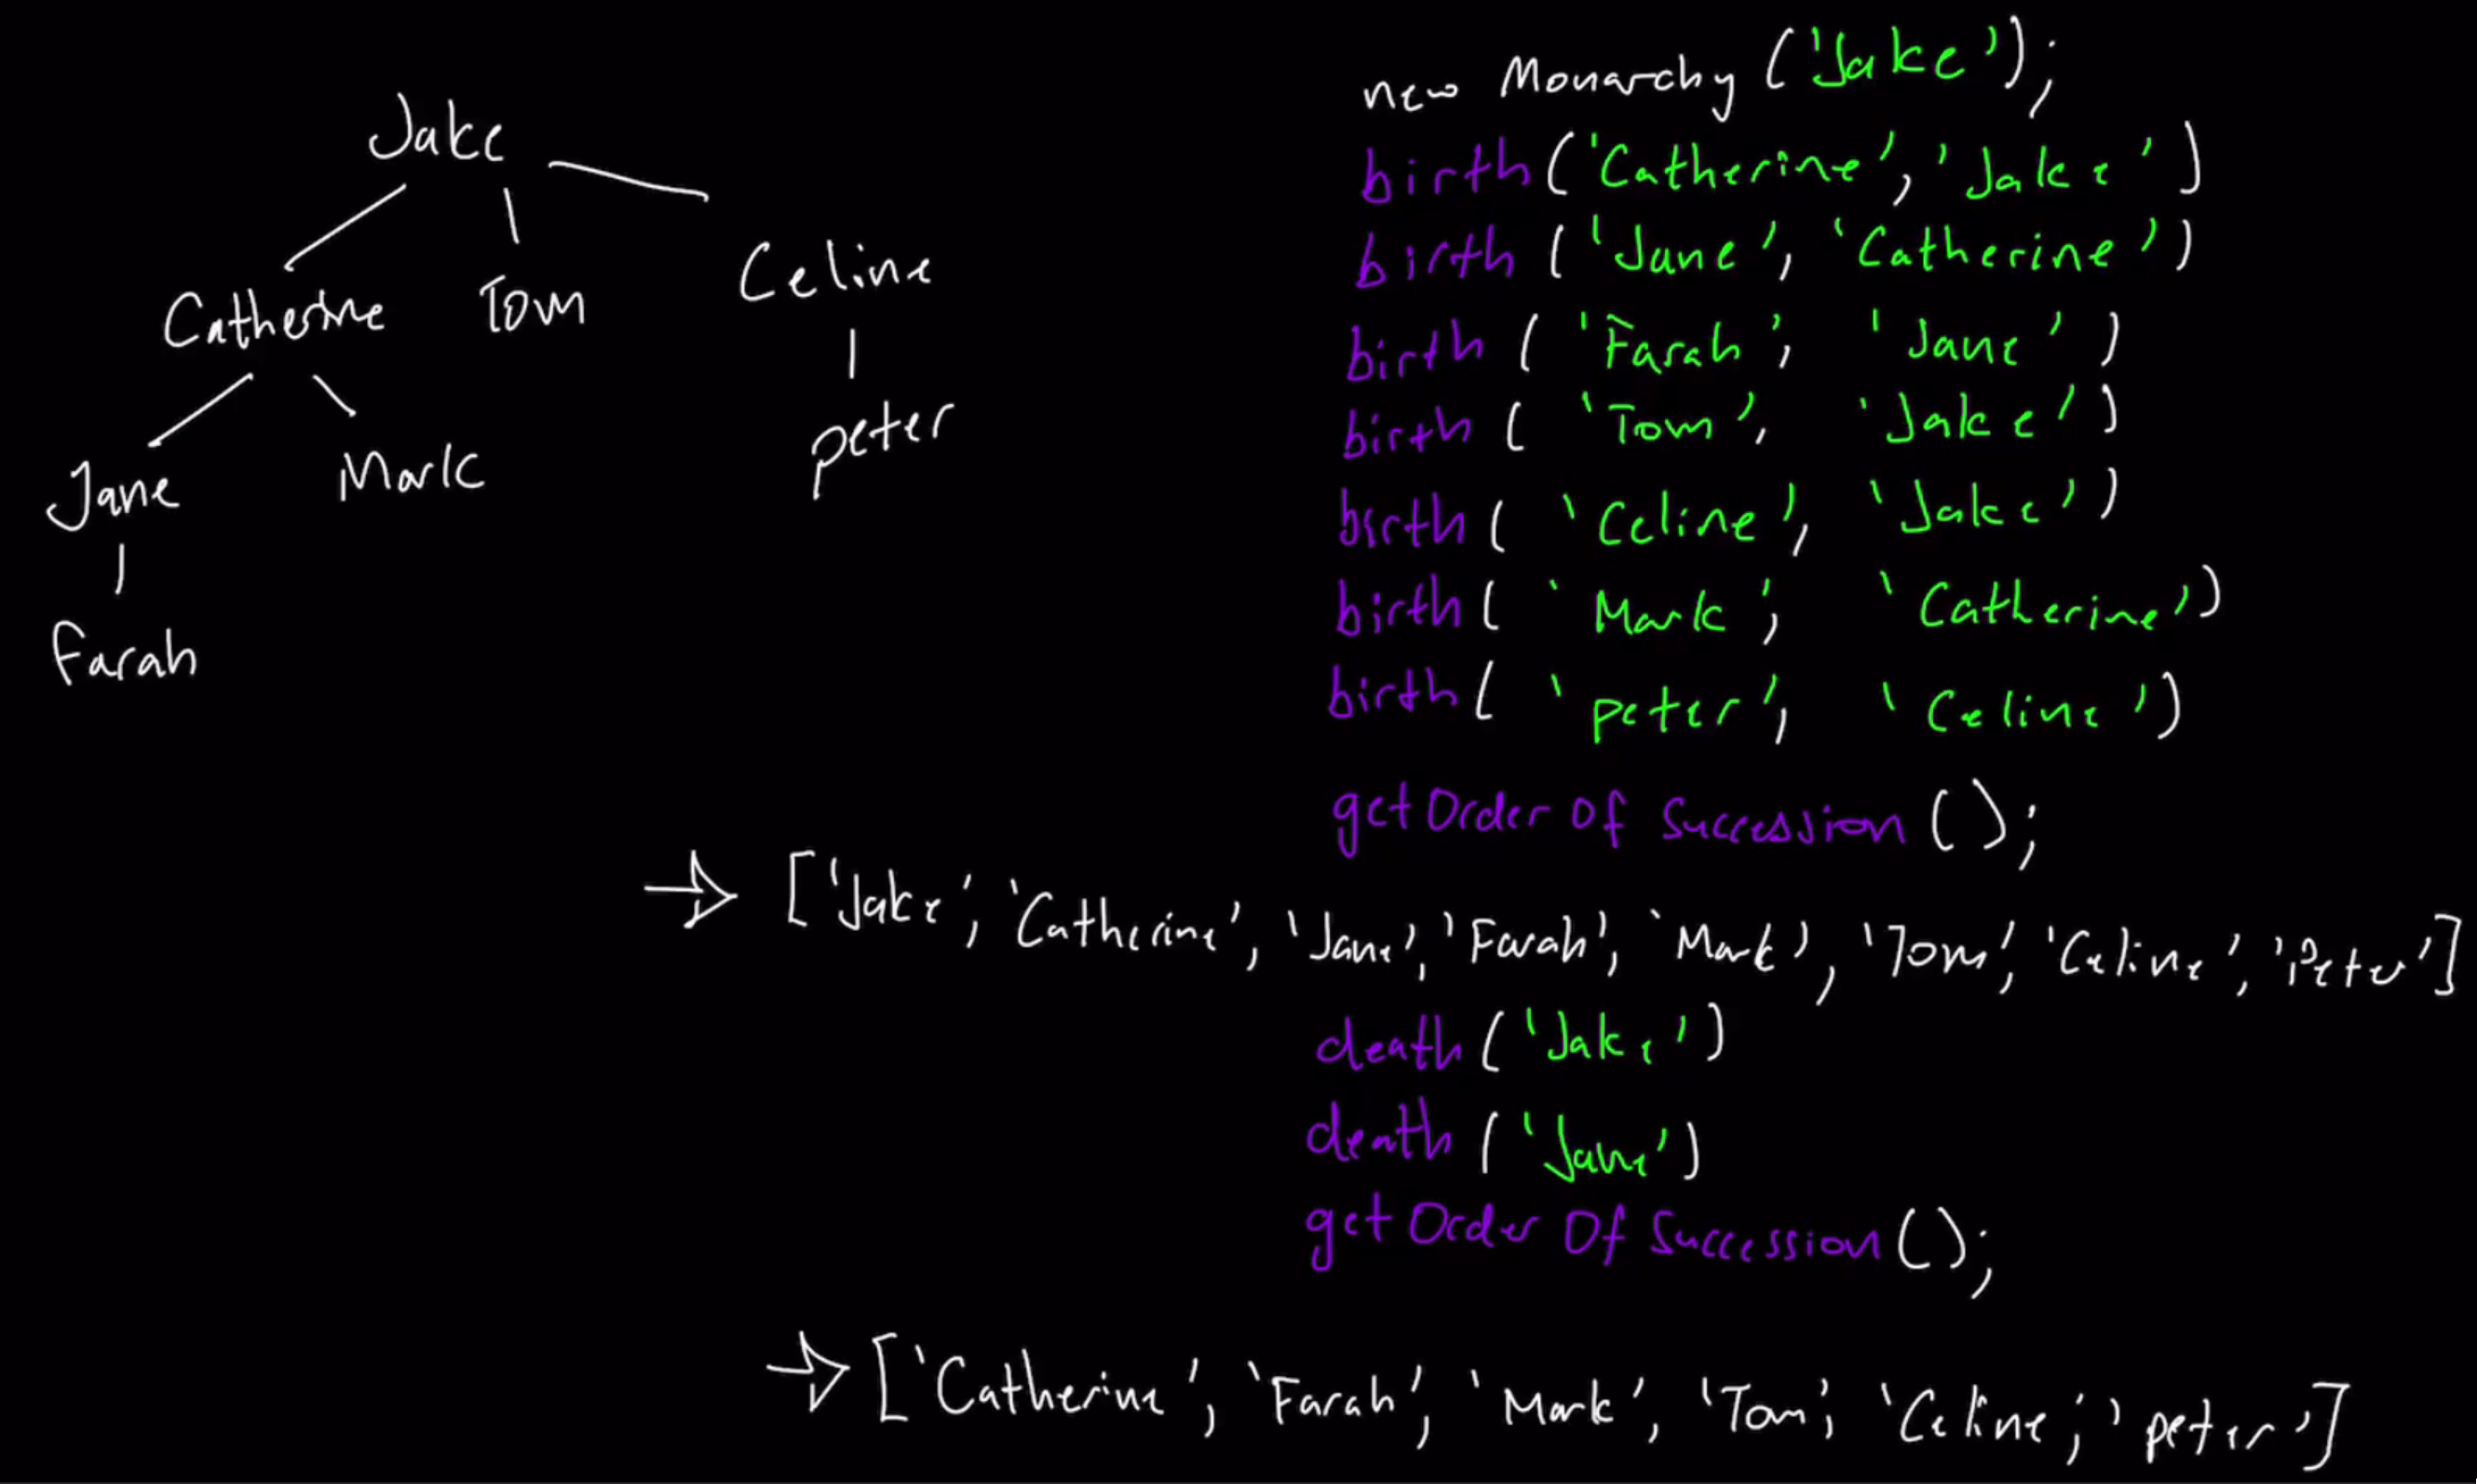 Jake
Catherine Tom Celine
Jane Mark peter
Farah
new Monarchy('Jake');
birth('Catherine', 'Jake')
birth('Jane', 'Catherine')
birth('Farah', 'Jane')
birth('Tom', 'Jake')
birth('Celine', 'Jake')
birth('Mark', 'Catherine')
birth('peter', 'Celine')
getOrderOfSuccession();
→ ['Jake', 'Catherine', 'Jane', 'Farah', 'Mark', 'Tom', 'Celine', 'Peter']
death('Jake')
death('Jane')
getOrderOfSuccession();
→ ['Catherine', 'Farah', 'Mark', 'Tom', 'Celine', 'peter']